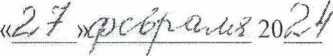 «27» февраля 2024